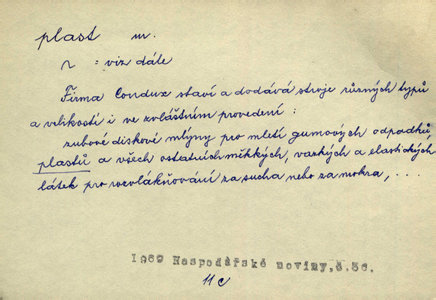 plast m.
n : viz dále
Firma Condux staví a dodává stroje různých typů
a velikostí i ve zvláštním provedení :
zubové diskové mlýny pro mletí gumových odpadků,
plastů a všech ostatních měkkých, vazkých a elastických
látek pro rozvlákňování za sucha nebo za mokra, ...
1969 Hospodářské noviny, č. 36.
11c